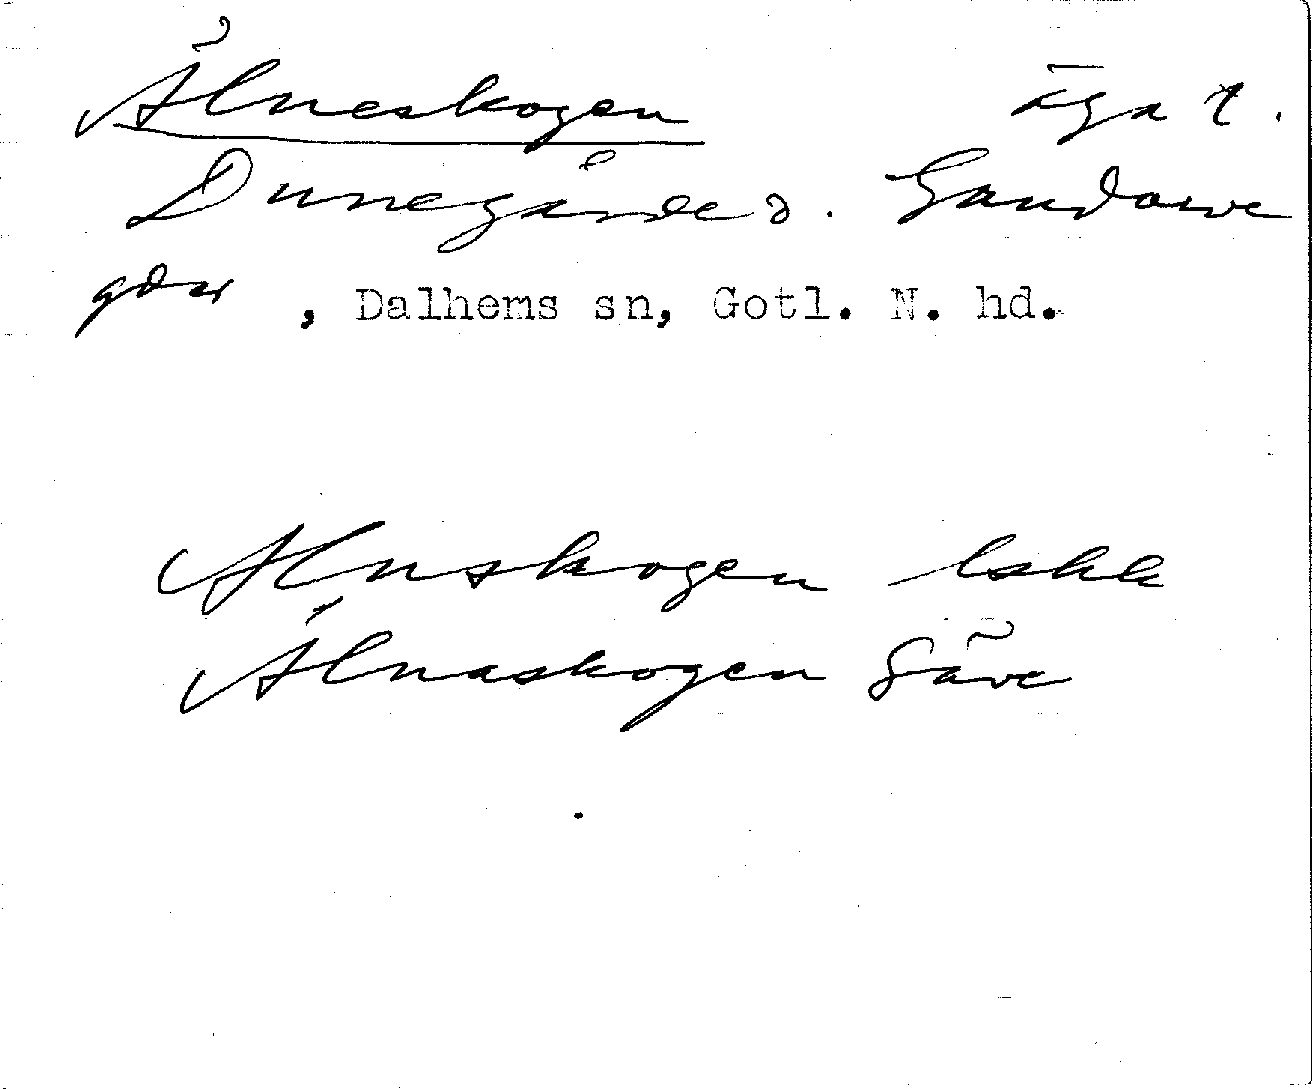 Ålneskogen äga t.
Dunegårde o. Gandarve
gdar , Dalhems sn, Gotl. N. hd.
Alnskogen lskk
Älnaskogen Säve